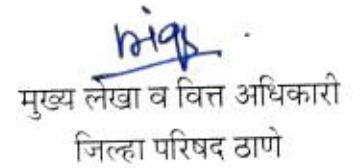 मुख्य लेखा व वित्त अधिकारी
जिल्हा परिषद ठाणे